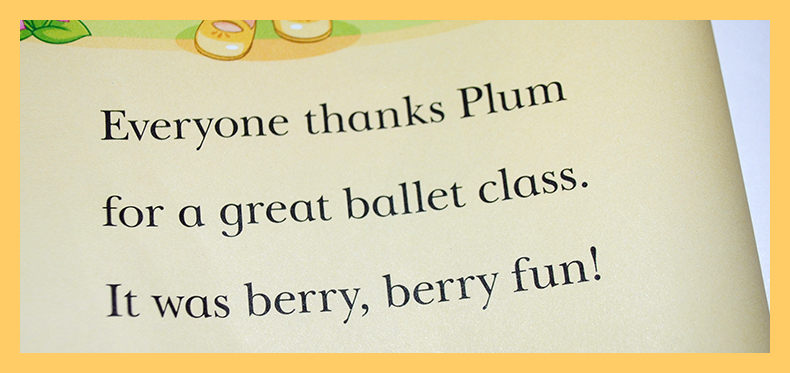 Everyone thanks Plum
for a great ballet class.
It was berry, berry fun!